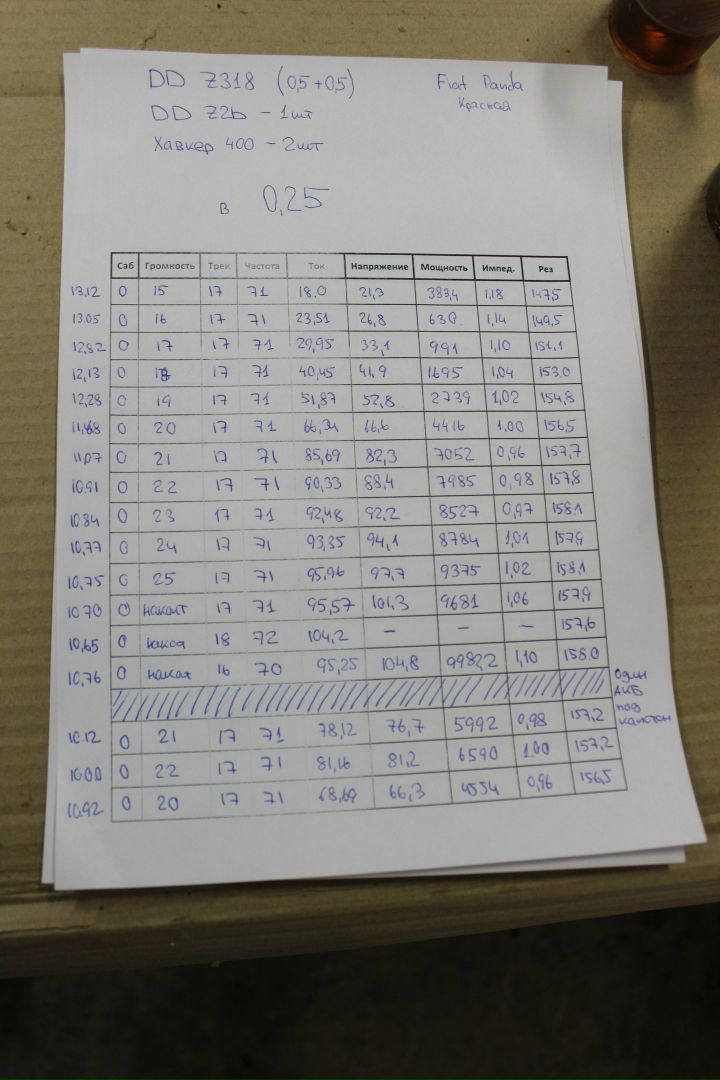 DD Z318 (0,5+0,5) Fiat Panda
DD Z2b - 1шт Красная
Хавкер 400 - 2шт
в 0,25
Саб Громкость Трек Частота Ток Напряжение Мощность Импед. Рез
13,12 0 15 17 71 18.0 21,3 383,4 1,18 147,5
13.05 0 16 17 71 23,51 26,8 630 1,14 149,5
12,82 0 17 17 71 29,95 33,1 991 1,10 151,1
12,13 0 18 17 71 40,45 41,9 1695 1,04 153,0
12,28 0 19 17 71 51,87 52,8 2739 1,02 154,8
11,68 0 20 17 71 66,34 66,6 4416 1.00 156,5
11,07 0 21 17 71 85,69 82,3 7052 0,96 157,7
10.91 0 22 17 71 90,33 88,4 7985 0,98 157,8
10.84 0 23 17 71 92,48 92,2 8527 0,97 158,1
10,77 0 24 17 71 93,35 94,1 8784 1,01 157,9
10,75 0 25 17 71 95,96 97,7 9375 1,02 158,1
10.70 0 17 71 95,57 101,3 9681 1,06 157,9
10,65 0 18 72 104,2 - - - 157,6
10,76 0 накат 16 70 95,25 104,8 9982,2 1,10 158.0
один
АКБ
под
капотом
10.12 0 21 17 71 78,12 76,7 5992 0,98 157,2
10.00 0 22 17 71 81,16 81,2 6590 1.00 157,2
10.92 0 20 17 71 68,69 66,3 4554 0,96 156,5